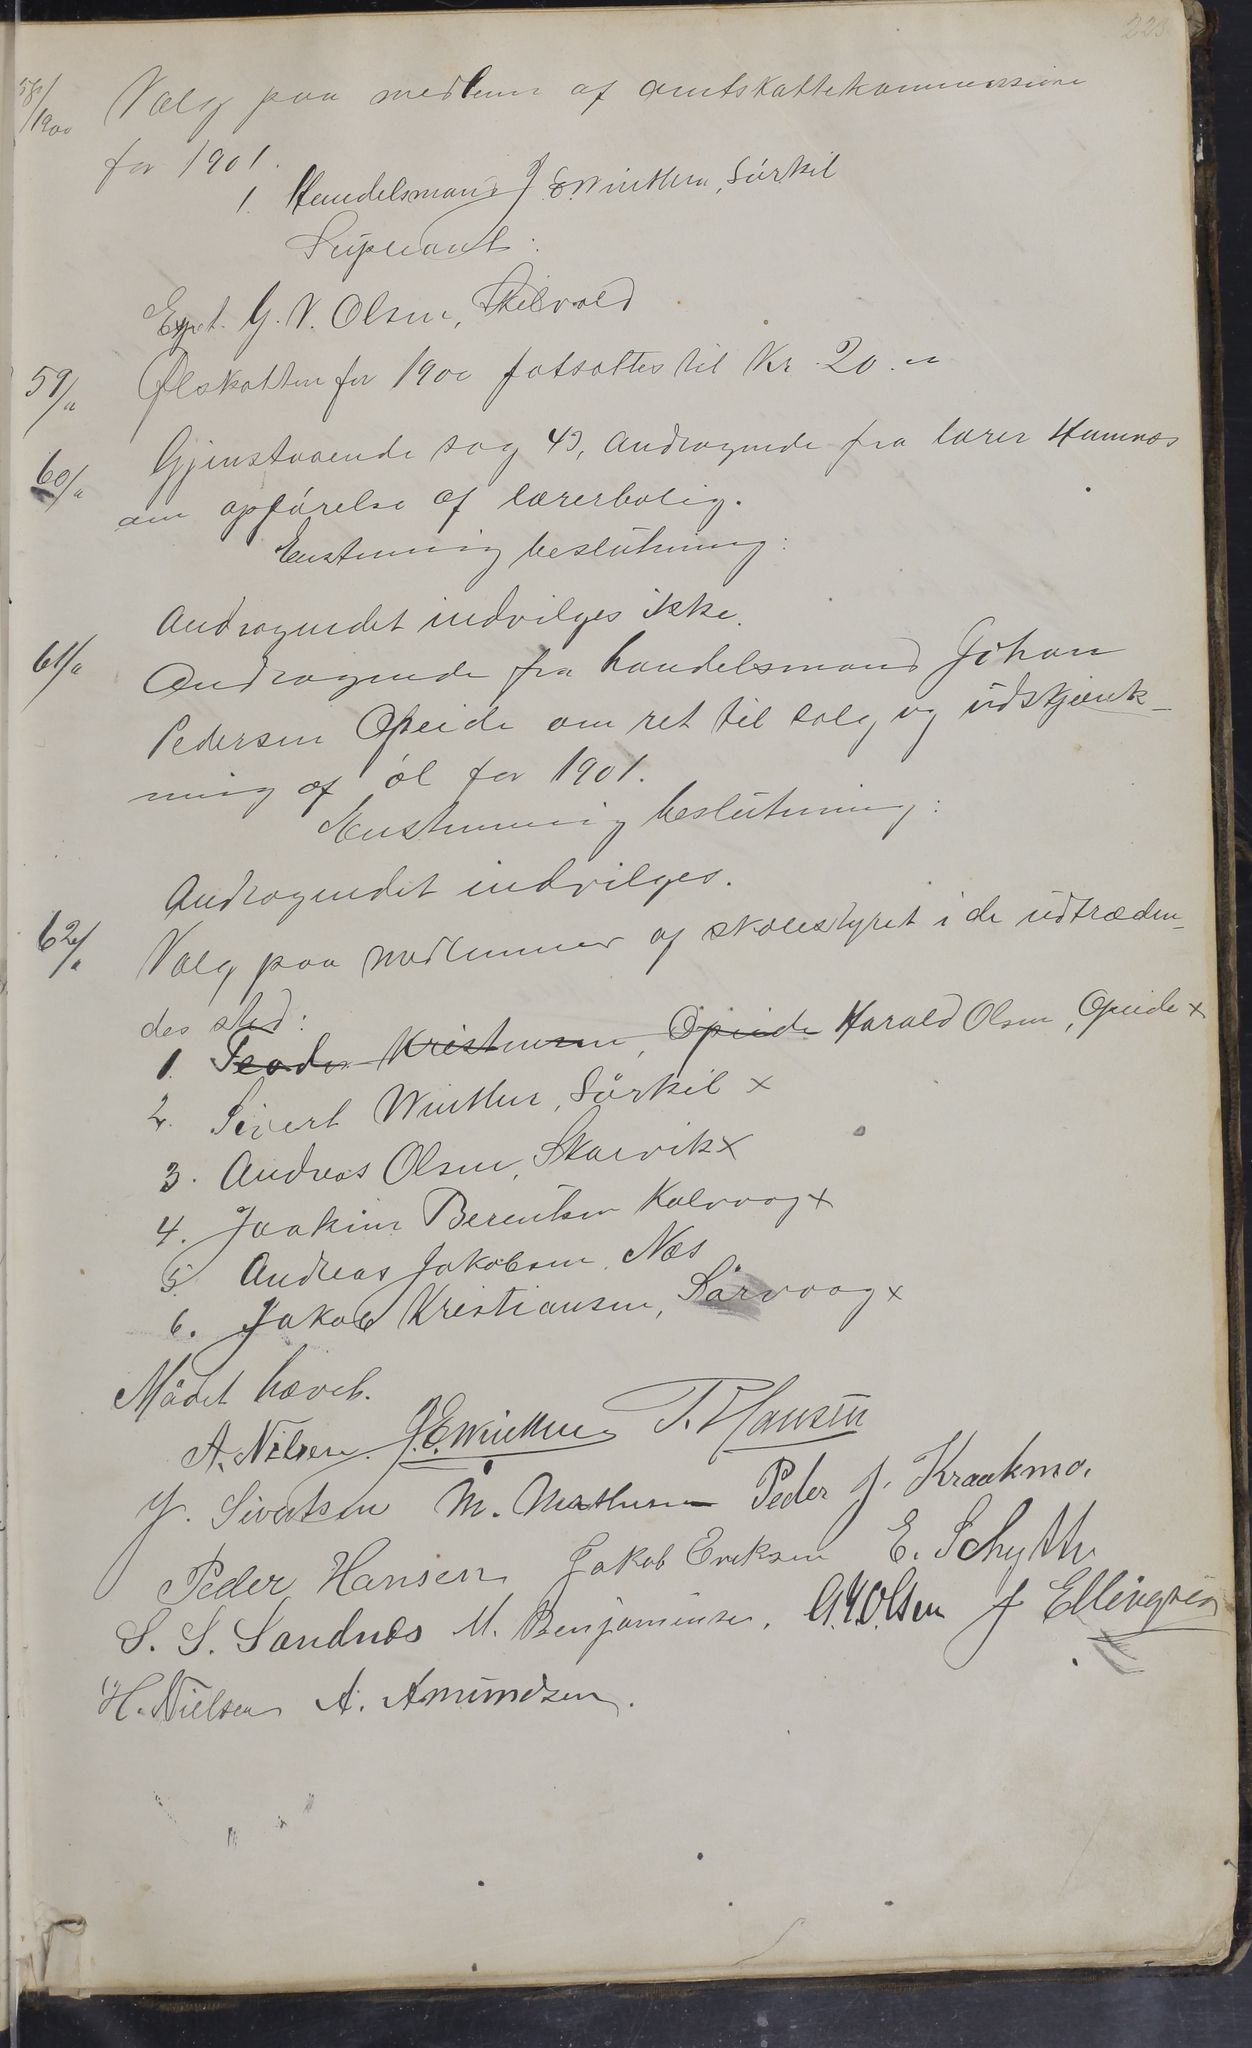 223
58/1900 Valg paa medlem af amtskattekommissione
for 1901.
1. Handelsmand J. E. Winther, Sørkil
Supleant:
Expt. G. N. Olsen, Skilvold
59/" Ølskatten for 1900 fatsattes til Kr 20.00
60/" Gjenstaaende sag 43, Andragende fra lærer Hamnæs
om opførelse af lærerbolig.
Enstemmig beslutning:
Andragendet indvilges ikke.
61/" Andragende fra handelsmand Johan
Pedersen Opeide om ret til salg og udskjænk-
ning af øl for 1901.
Enstemmig beslutning:
Andragendet indvilges.
62/" Valg paa medlemmer af skolestyret i de udtræden-
des sted:
1. Peder Kristensen, Opeide Harald Olsen, Opeide x
2. Sivert Winther, Sørkil x
3. Andreas Olsen, Skarvik x
4. Joakim Berentsen Kalvaag x
5. Andreas Jakobsen, Næs
6. Jakob Kristiansen, Sørvaag x
Mødet hævet.
A. Nilsen. J. E. Winther P. Hansen
J. Sivertsen M. Mathisen Peder J. Kraakmo.
Peder Hansen Jakob Eriksen E. Schytte
S. S. Sandnæs M. Benjaminsen. G. N. Olsen J Ellingsen
H. Nielsen A. Amundsen.